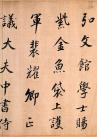 弘文館學士賜
紫金魚袋上護
軍裴耀卿正
議大夫中書侍